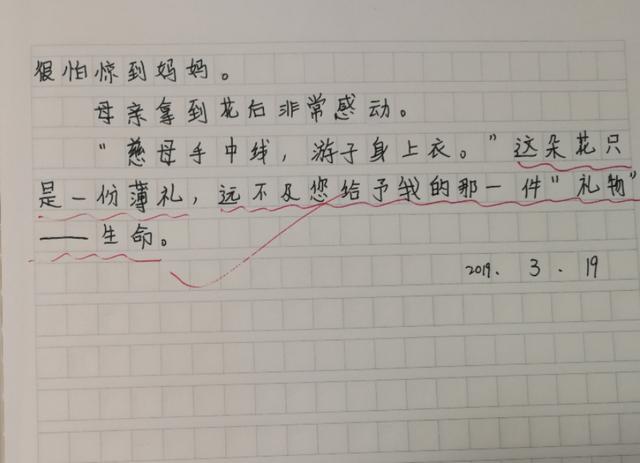 很怕惊到妈妈。
母亲拿到花后非常感动。
“慈母手中线，游子身上衣。”这朵花只
是一份薄礼，远不及您给予我的那一件“礼物”
——生命。
2019. 3. 19